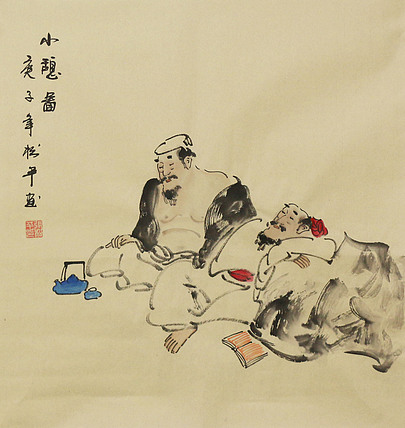 小憩圖
庚子年松平画